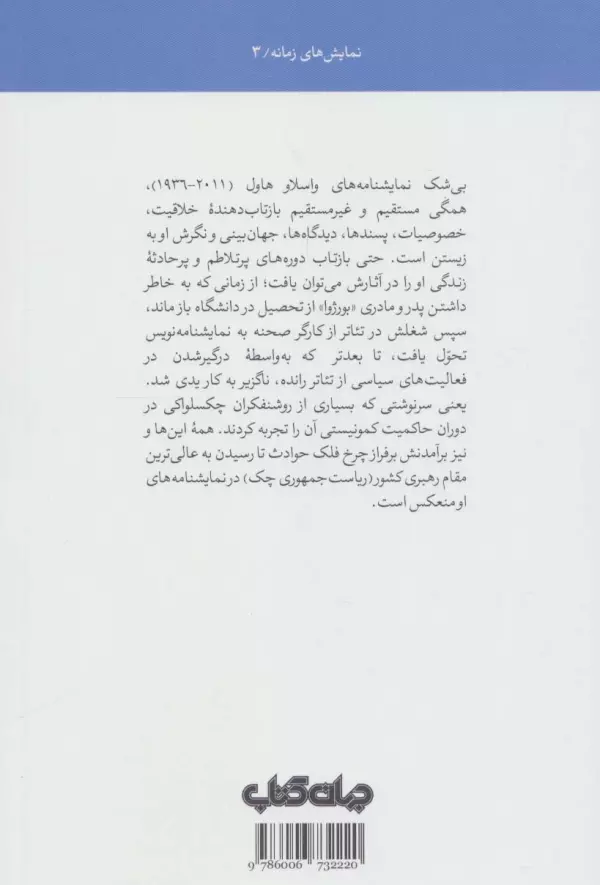 نمایش‌های زمانه/ ۳
بی‌شک نمایشنامه‌های واسلاو هاول (۲۰۱۱-۱۹۳۶)،
همگی مستقیم و غیرمستقیم بازتاب‌دهندهٔ خلاقیت،
خصوصیات، پسندها، دیدگاه‌ها، جهان‌بینی و نگرش او به
زیستن است. حتی بازتاب دوره‌های پرتلاطم و پرحادثهٔ
زندگی او را در آثارش می‌توان یافت؛ از زمانی که به خاطر
داشتن پدر و مادری «بورژوا» از تحصیل در دانشگاه باز ماند،
سپس شغلش در تئاتر از کارگر صحنه به نمایشنامه‌نویس
تحوّل یافت، تا بعدتر که به‌واسطهٔ درگیرشدن در
فعالیت‌های سیاسی از تئاتر رانده، ناگزیر به کار یدی شد.
یعنی سرنوشتی که بسیاری از روشنفکران چکسلواکی در
دوران حاکمیت کمونیستی آن را تجربه کردند. همهٔ این‌ها و
نیز برآمدنش بر فراز چرخ فلک حوادث تا رسیدن به عالی‌ترین
مقام رهبری کشور (ریاست جمهوری چک) در نمایشنامه‌های
او منعکس است.
جهان کتاب
9 786006 732220